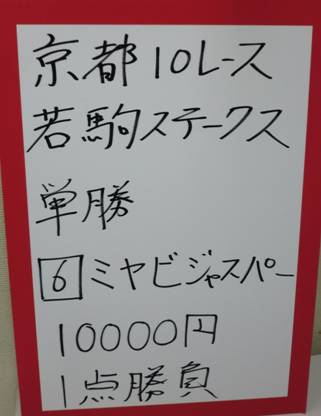 京都10レース
若駒ステークス
単勝
6 ミヤビジャスパー
10000円
1点勝負